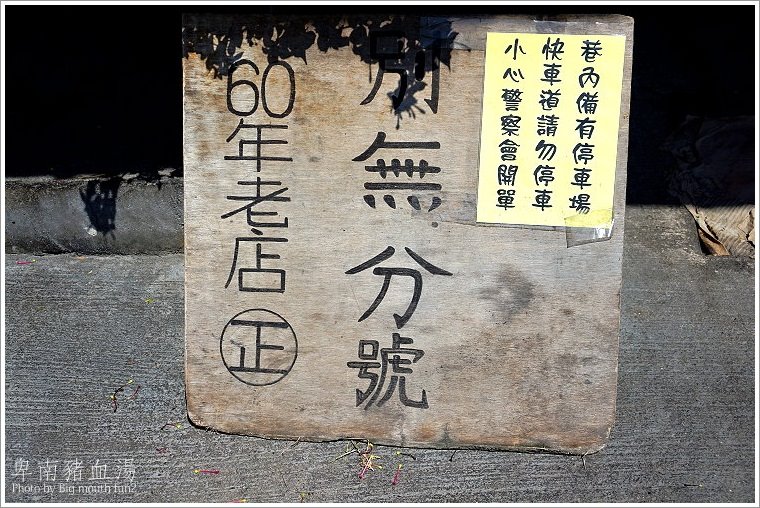 巷內備有停車場
快車道請勿停車
小心警察會開單
別無分號
60年老店正
卑南豬血湯
Photo by Big mouth fun?